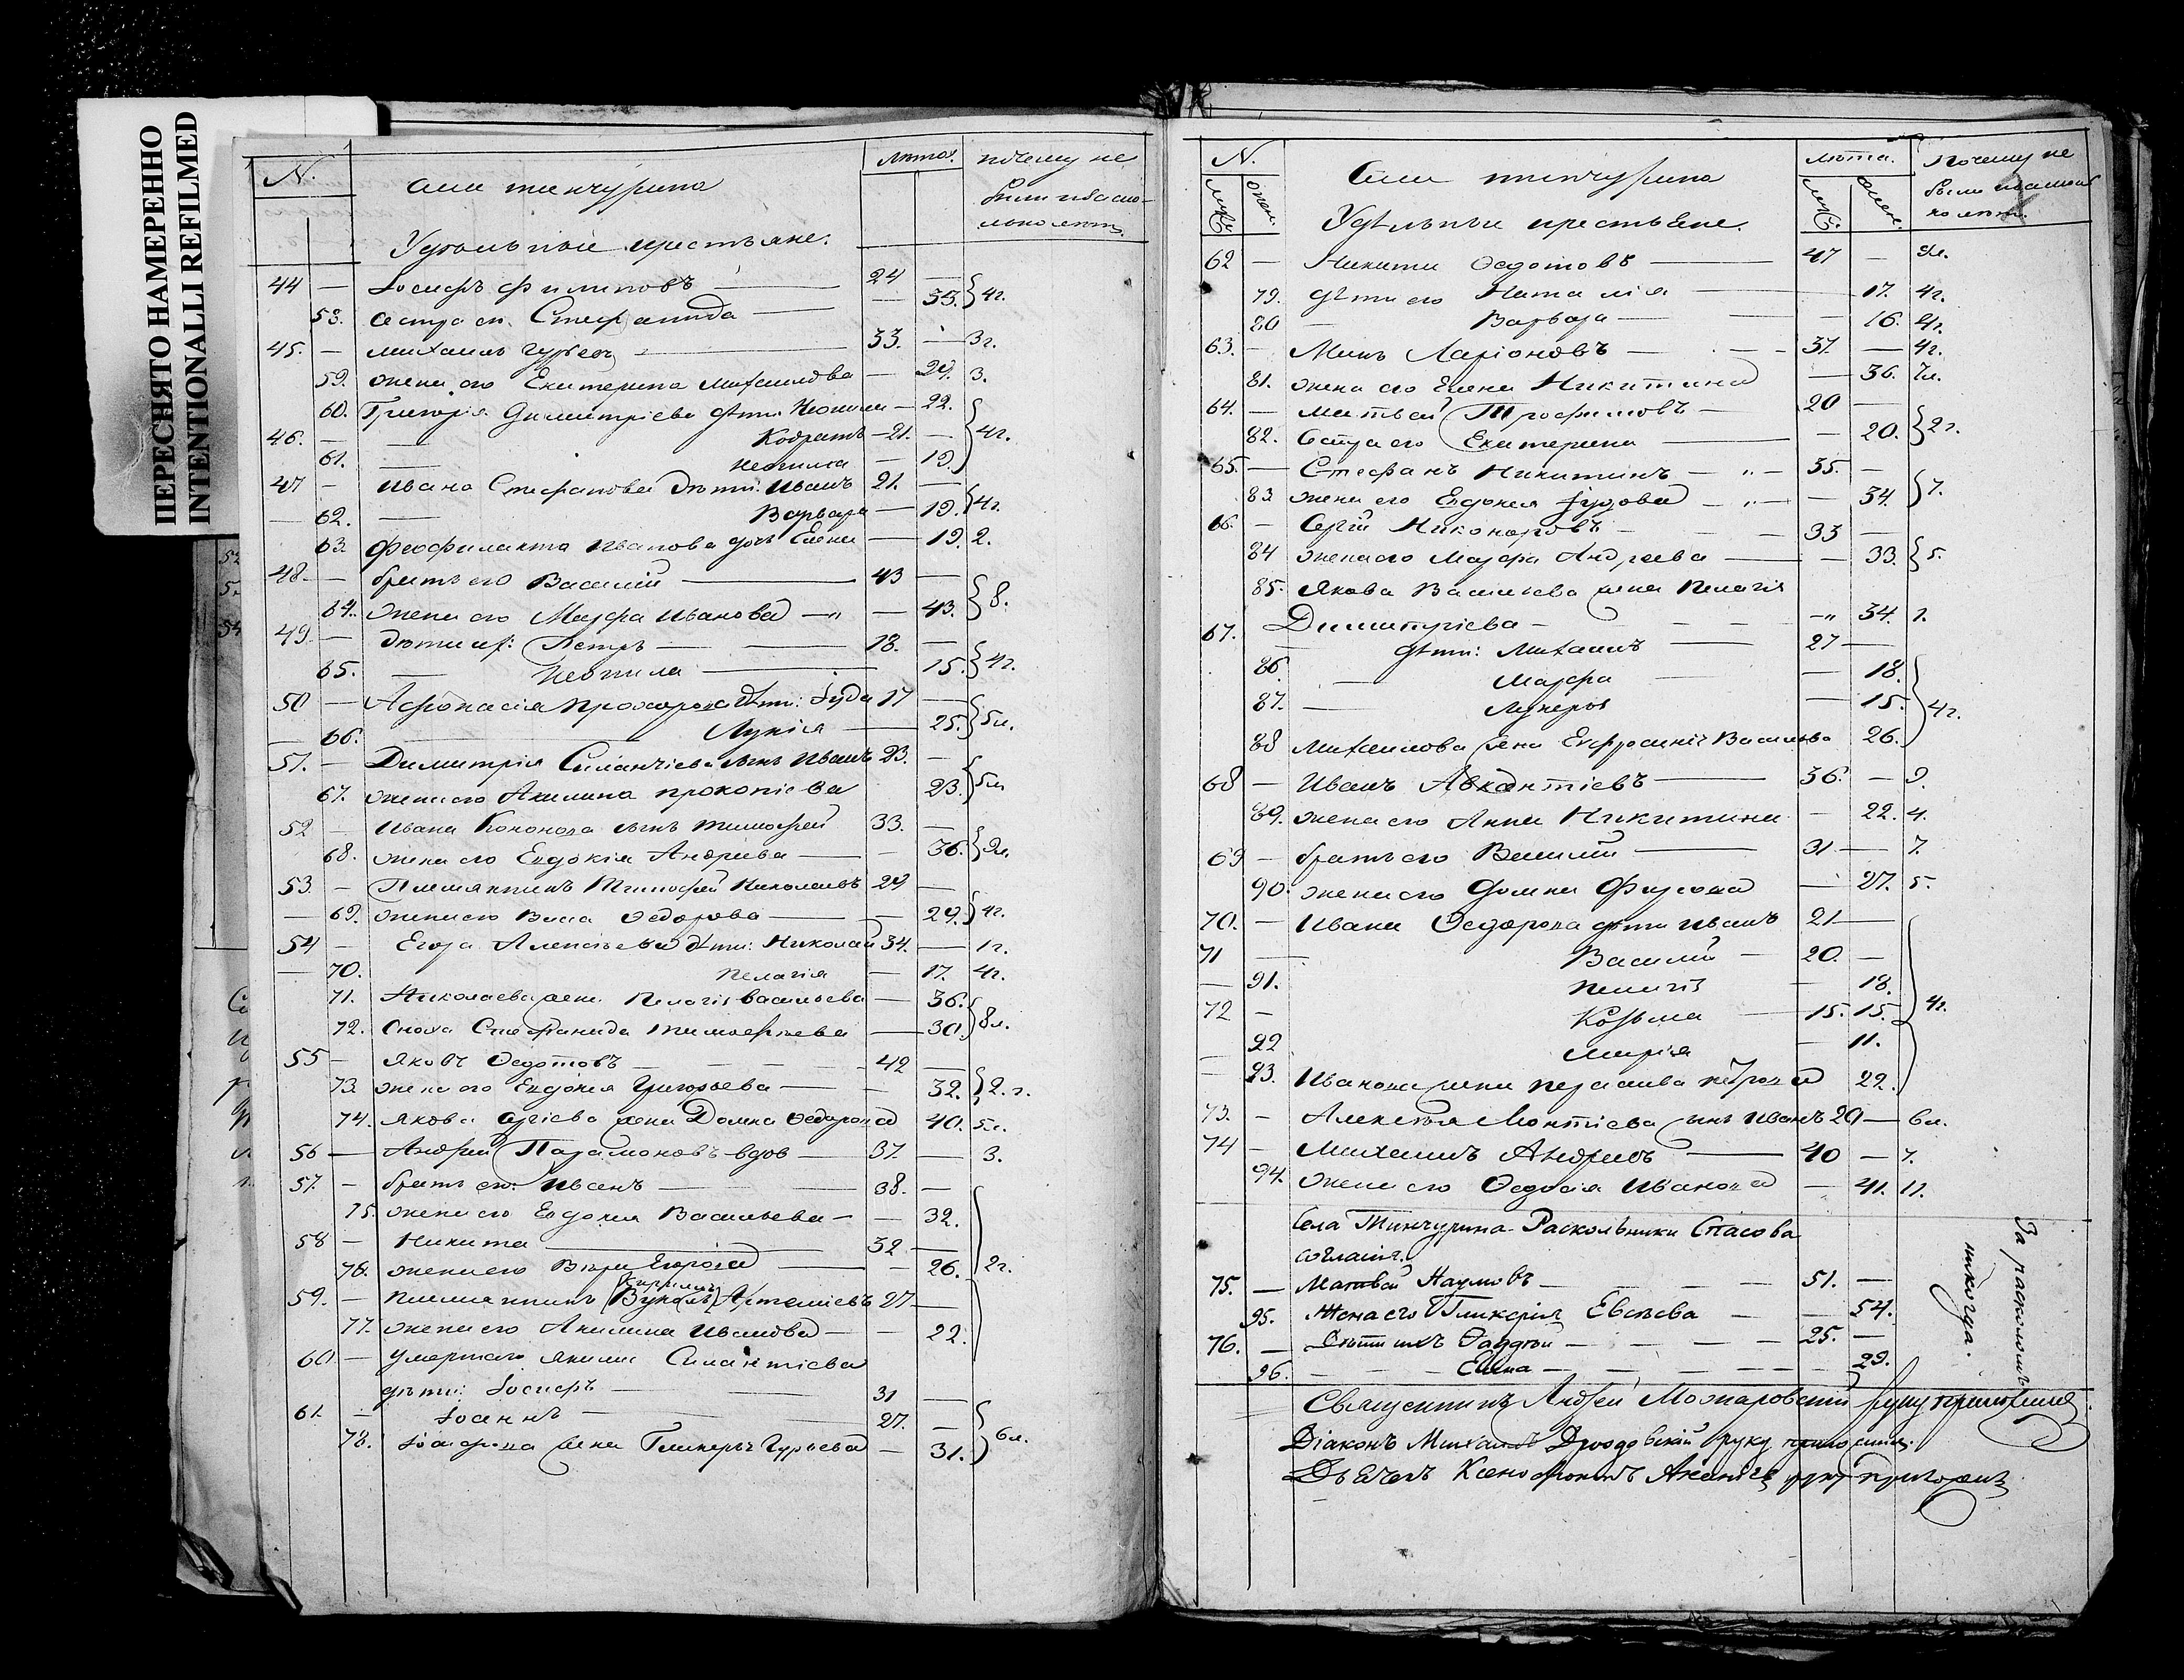 ПЕРЕСНЯТО НАМЕРЕННО
INTENTIONALLI REFILMED
N.
села тинчурина
лѣта.
почему не были и сколько лѣтъ
Удѣльныи крестьяне.
44 — Іосифъ Филиповъ — 24 —
58. Сестра ег. Стефанида — 33. } 4г.
45. — Михаилъ Гурьевъ — 33. — 3г.
59. жена его Екатерина Михаилова — 29. 3.
60. Григорія Димитріева дѣти — 22.
46. — Кодратъ — 21. — } 4г.
61. — Неонила — 19.
47 — Ивана Стефанова дѣти: Иванъ 21. —
— 62. — Варвара — 19. } 4г.
63. Феофилакта Иванова дочь Елена — 19. 2.
48. — братъ его Василій — 43 —
64. жена его Марфа Иванова — 43. } 8.
49. — дѣти их: Петръ — 18. —
65. — Неонила — 15. } 4г.
50 — Афонасія Прохорова дѣти: Іуда 17 —
— 66. — Лукія — 25. } 5л.
51. — Димитрія Силантіева сынъ Иванъ 23. —
67. жена его Акилина Прокопіева 23. } 5л
52 — Ивана Кононова сынъ Тимофей 33. —
68. жена его Евдокія Андреева — 36. } 9л.
53. — Тимофей Николаевъ 29 —
— 69. жена его Васа Федорова — 29. } 4г.
54 — Егора Алексѣева дѣти: Николай 34. — 1г.
— 70. Пелагія — 17. 4г.
71. Николаева жена Пелагія Васильева — 36.
72. Сноха Стефанида Тимофеева — 30. } 8л.
55 — Яковъ Федотовъ — 42 —
73. жена его Евдокия Григорьева — 32. } 2.г.
74. Якова Сергіева жена Домна Федорова 40. 5л.
56 — Андрей Парамоновъ вдов — 37. — 3.
57. — братъ его: Иванъ — 38. —
75. жена его Евдокия Васильева — 32.
58 — Никита — 32 —
76. жена его Егорова — 26. } 2г.
Кириллъ
59. — Вуколъ Артеміевъ 27 —
77. жена его Акилина Иванова — 22.
60. — Умершаго Якима Силантіева
дѣти: Іосифъ — 31 —
61. — Іоаннъ — 27. —
78. Іосифова жена Гликерья Гурьева — 31. } 6л.
N.
муж. жен.
Села тинчурина
Удѣльныи крестьяне.
лѣта.
муж. жен.
Почему не были и сколько лѣтъ.
62 — Никита Федотовъ — 47 — 9л.
79. дѣти его Наталія — 17. 4г.
80 — Варвара — 16. 4г.
63. — Ларіоновъ — 37. — 4г.
81. жена его Елена Никитина — 36. 7л.
64. — Матвей Трофимовъ — 20 —
82. Сестра его Екатерина — 20. } 2г.
65. — Стефанъ Никитинъ — 35. —
83 жена его Евдокия — 34. } 7.
66. — Сергій Никоноровъ — 33 —
84 жена его Марфа Андреева — 33. } 5.
85. Якова Васильева жена Пелагія
Димитріева — 34. 1.
67. — дѣти: Михаилъ — 27 —
86. — Марфа — 18.
87. — Лукерья — 15. } 4г.
88 Михаилова жена Евфросинія Васильева 26.
68 — Иванъ Авксентіевъ — 36. — 9.
89. жена его Анна Никитина — 22. 4.
69 — братъ его Василій — 31 — 7.
90. жена его Домна Фирсова — 27. 5.
70. — Ивана Федорова дѣти Иванъ 21 —
71 — Василій — 20. —
— 91. Пелагія — 18.
72 — Козьма — 15. 15. } 4г.
— 92 Марія — 11.
— 93. Иванова жена Парасковья Петрова 22.
73. — Алексѣя Леонтіева сынъ Иванъ 29 — 6л.
74 — Михаилъ Андреевъ — 40 — 7.
94. жена его Федосія Иванова — 41. 11.
Села Тинчурина Раскольники Спасова
согласія.
75. — Матвей Наумовъ — 51. —
95. Жена его Гликерія Евсѣева — 54.
76. — Дѣти ихъ Фаддей — 25. —
96. — Елена — 29.
За расколомъ никогда.
Священникъ Андрей Можаровскій руку приложилъ.
Діаконъ Михаилъ Дроздовскій руку приложилъ.
Дьячекъ Ксенофонтъ руку приложилъ